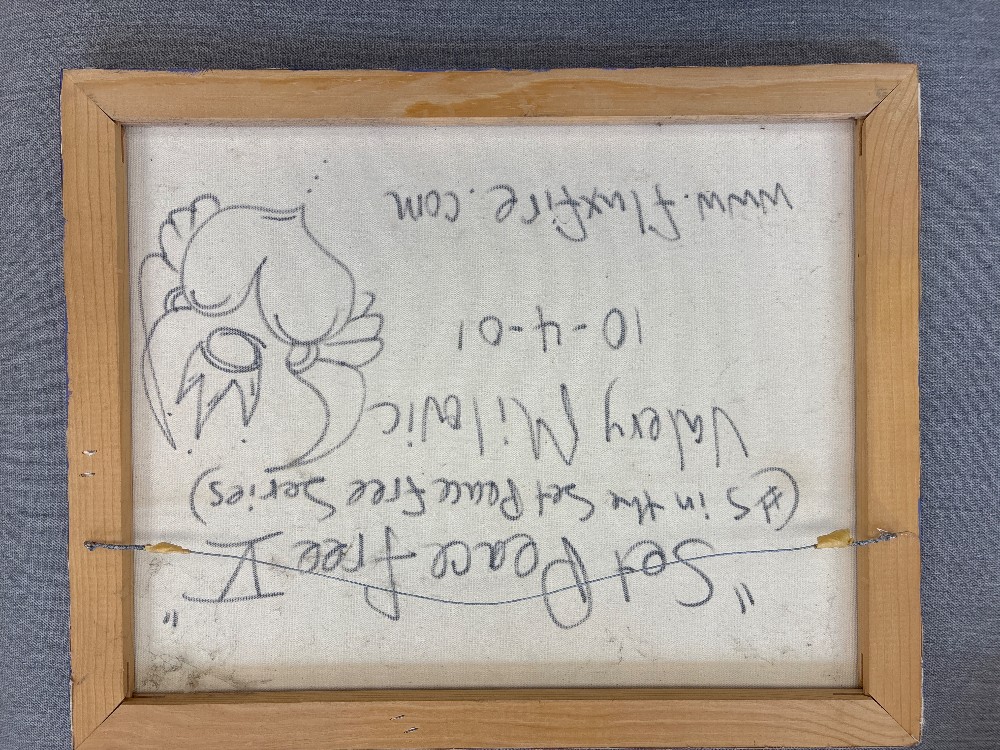 "Set Peace Free V"
(#5 in the Set Peace Free Series)
Valery Milovic
10-4-01
www.fluxfire.com